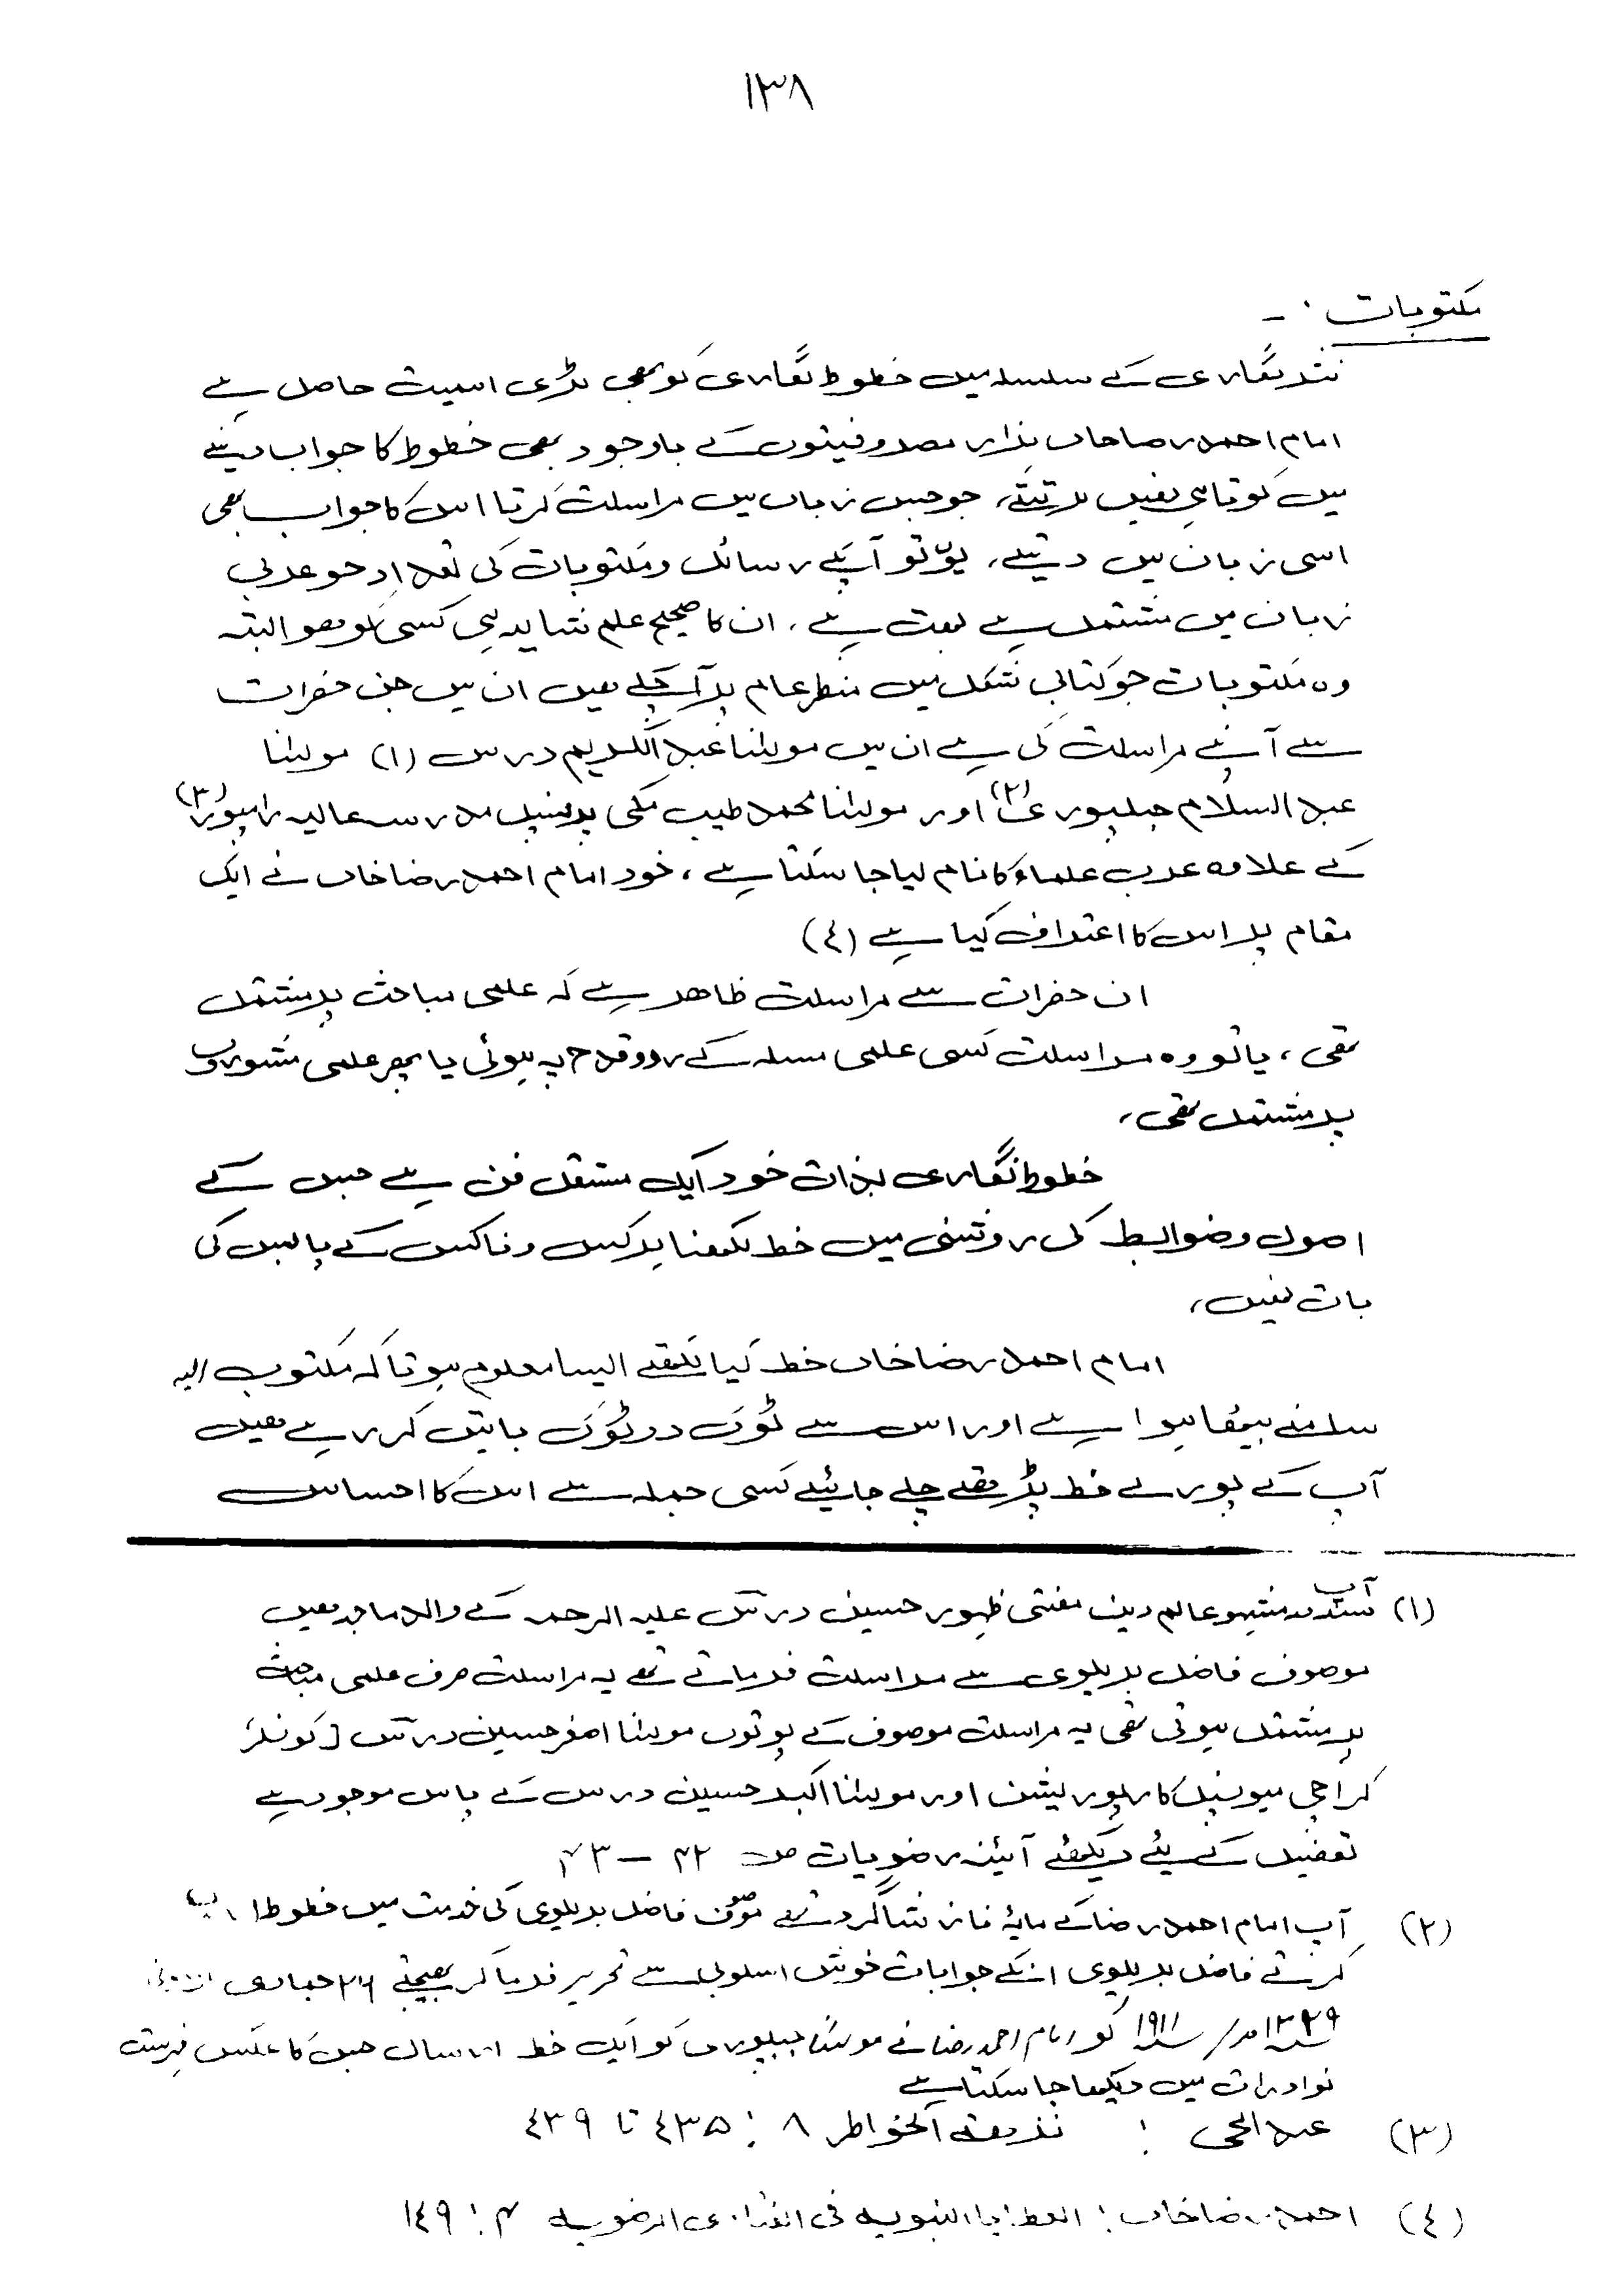 ۱۳۸
مکتوبات :-
نثر نگاری کے سلسلہ میں خطوط نگاری کو بھی بڑی اہمیت حاصل ہے
امام احمد رضا خاں ہزار مصروفیتوں کے باوجود بھی خطوط کا جواب دینے
میں کوتاہی نہیں برتتے، جو جس زبان میں مراسلت کرتا اس کا جواب بھی
اسی زبان میں دیتے، یوں تو آپکے رسائل و مکتوبات کی تعداد جو عربی
زبان میں مشتمل ہے بہت ہے ، ان کا صحیح علم شاید ہی کسی کو ہو البتہ
وہ مکتوبات جو کتابی شکل میں منظر عام پر آ چکے ہیں ان میں جن حضرات
سے آپنے مراسلت کی ہے ان میں مولانا عبد الکریم درس (۱) مولانا
عبد السلام جبلپوری (۲) اور مولانا محمد طیب مکی پرنسپل مدرسہ عالیہ رامپور (۳)
کے علاوہ عرب علماء کا نام لیا جا سکتا ہے ، خود امام احمد رضا خاں نے ایک
مقام پر اس کا اعتراف کیا ہے (٤)
ان حضرات سے مراسلت ظاہر ہے کہ علمی مباحث پر مشتمل
تھی ، یا تو وہ مراسلت کسی علمی مسئلہ کے رد و قدح پہ ہوئی یا پھر علمی مشوروں
پر مشتمل تھی،
خطوط نگاری بذات خود ایک مستقل فن ہے جس کے
اصول و ضوابط کی روشنی میں خط لکھنا ہر کس و ناکس کے بس کی
بات نہیں،
امام احمد رضا خاں خط کیا لکھتے ایسا معلوم ہوتا کہ مکتوب الیہ
سامنے بیٹھا ہوا ہے اور اس سے ٹوک در ٹوک باتیں کر رہے ہیں
آپ کے پورے خط پڑھتے چلے جائیے کسی جملہ سے اس کا احساس
(۱) آپ مشہور عالم دین مفتی ظہور حسین درس علیہ الرحمہ کے والد ماجد ہیں
موصوف فاضل بریلوی سے مراسلت فرماتے تھے یہ مراسلت صرف علمی مباحث
پر مشتمل ہوتی تھی یہ مراسلت موصوف کے پوتوں مولانا اصغر حسین درس [کونسلر
کراچی میونسپل کارپوریشن اور مولانا اکبر حسین درس کے پاس موجود ہے
تفصیل کے لئے دیکھئے آئینہ رضویات ص ۴۲ – ۴۳
(۲) آپ امام احمد رضا کے مایۂ ناز شاگرد تھے موصوف فاضل بریلوی کی خدمت میں خطوط
کرتے فاضل بریلوی انکے جوابات خوش اسلوبی سے تحریر فرما کر بھیجتے ۲۶ جمادی
۱۳۲۹ھ/ ۱۹۱۱ کو امام احمد رضا نے مولانا جبلپوری کو ایک خط ارسال جس کا عکس فہرست
نوادرات میں دیکھا جا سکتا ہے
(۳) عبد الحی : نزہۃ الخواطر ۸ : ٤۳۵ تا ٤۳۹
(٤) احمد رضا خاں : العطایا النبویہ فی الفتاوی الرضویہ ۴ : ۱٤۹